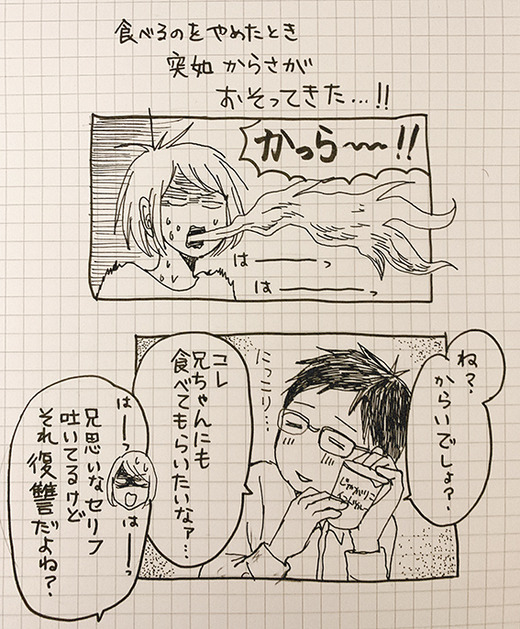 食べるのをやめたとき
突如からさが
おそってきた…!!
かっら〜〜!!
はーーーっ
はーーーっ
ね?
からいでしょ?
にっこり…
コレ
兄ちゃんにも
食べてもらいたいなァ…
じゃがりこ
はーーっ
はーーっ
兄思いなセリフ
吐いてるけど
それ復讐だよね?